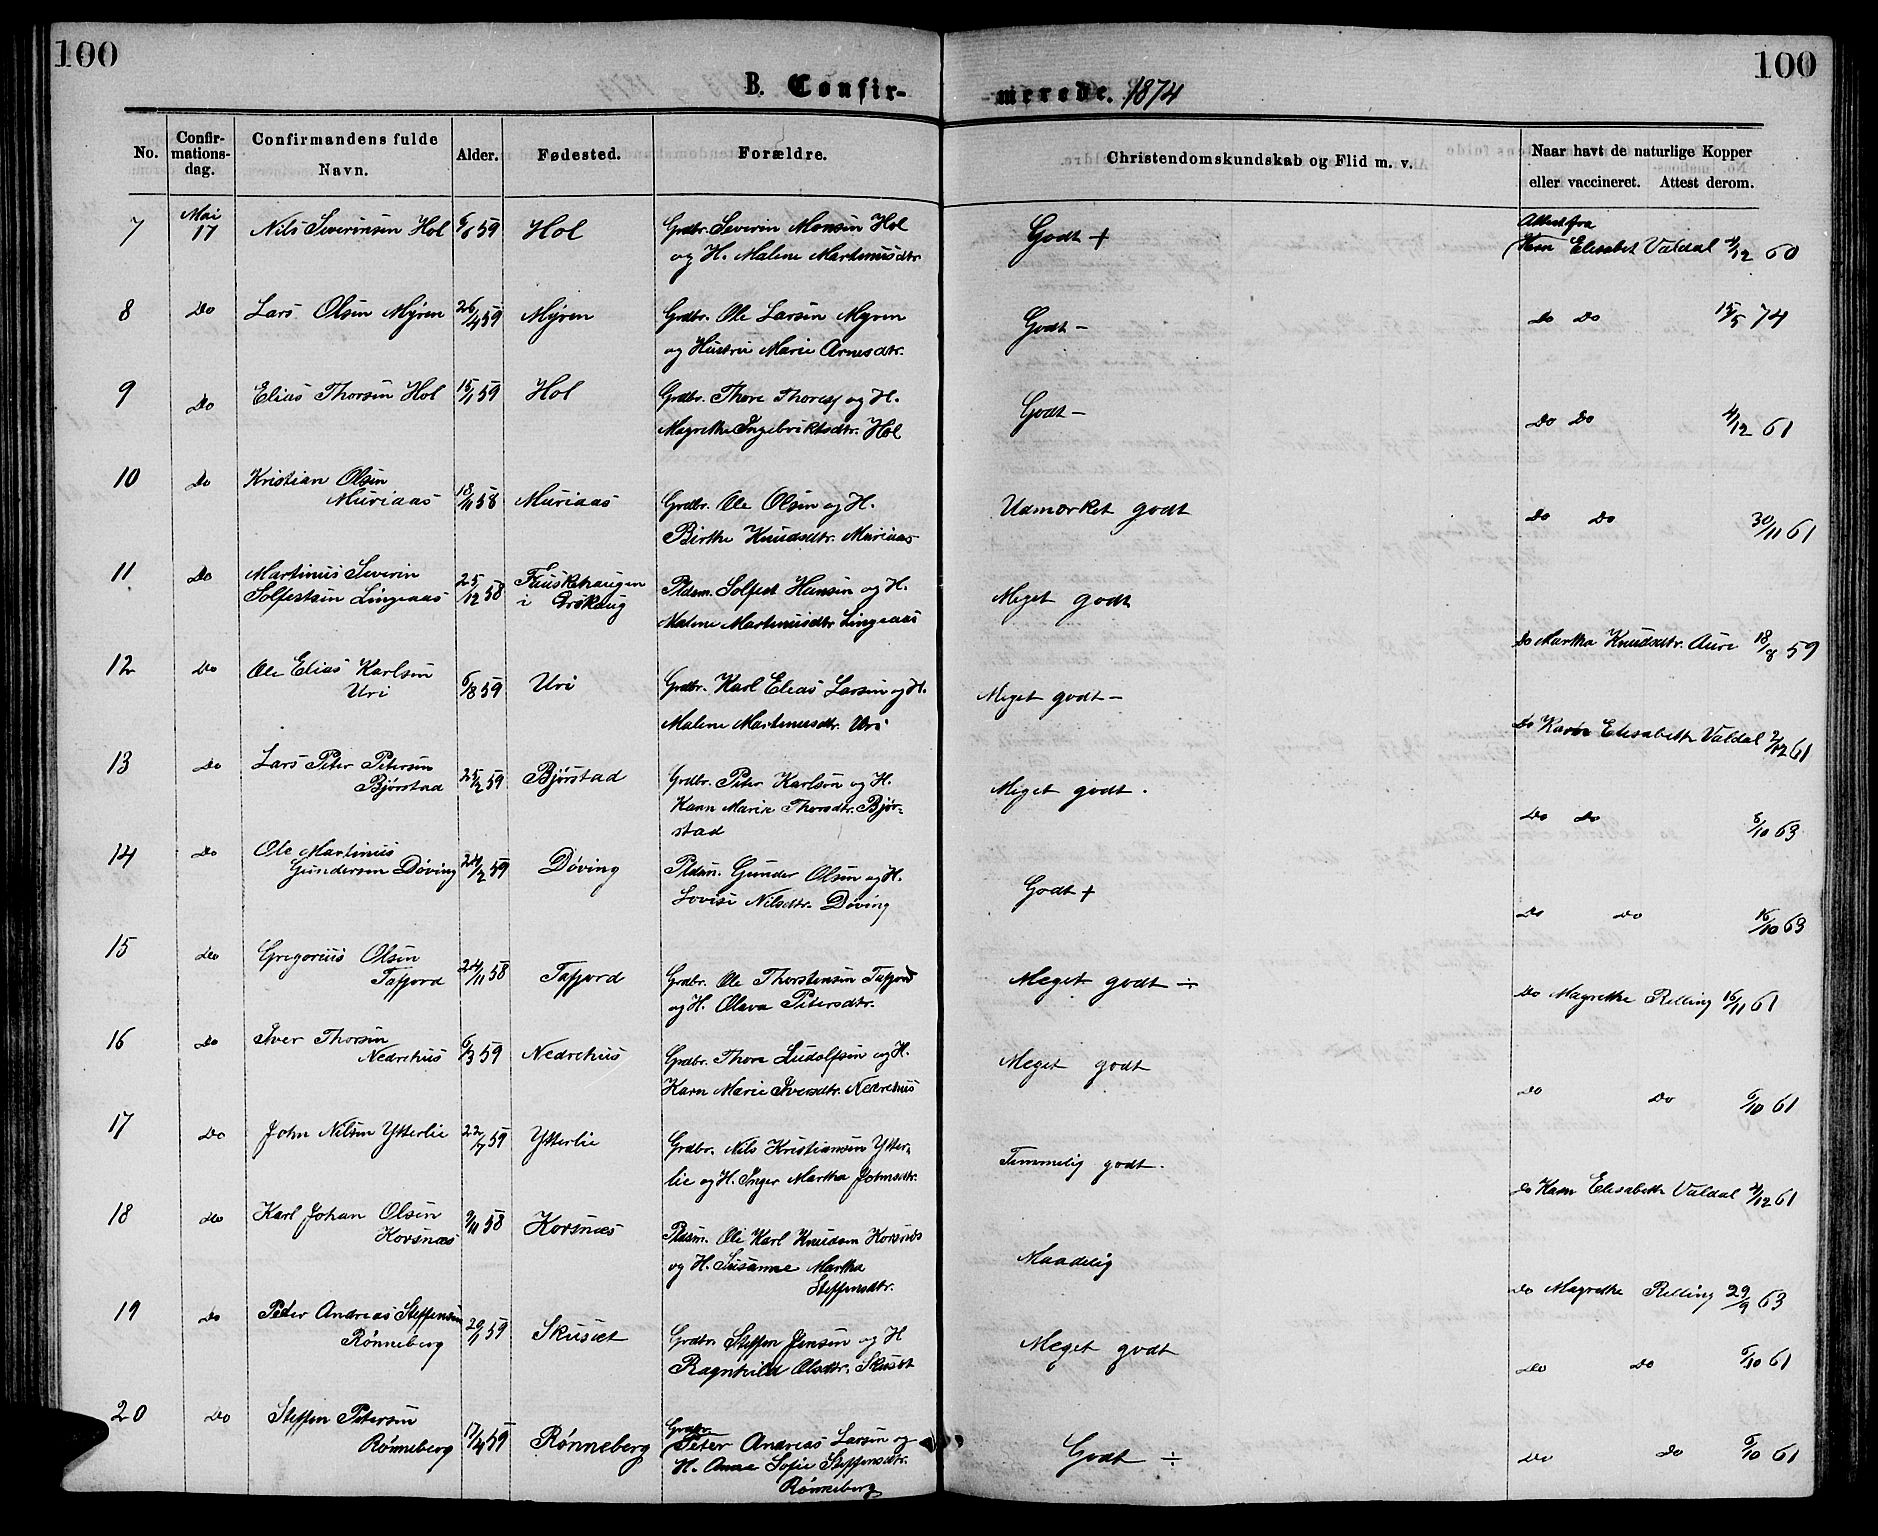 100
100
B. Confir-
merede. 1874
No.
Confir-
mations-
dag.
Confirmandens fulde
Navn.
Alder.
Fødested.
Forældre.
Christendomskundskab og Flid m. v.
Naar havt de naturlige Kopper
eller vaccineret. Attest derom.
7 Mai 17 Nils Severinsen Hol 6/6 59 Hol Grdbr. Severin Monsen Hol Godt + Attest fra
og H. Malene Martinusdtr. Karn Elisabet Valdal 4/12 60
8 Do Lars Olsen Myren 26/4 59 Myren Grdbr. Ole Larsen Myren Godt - Do Do 15/5 74
og Hustru Marie Arnesdtr.
9 Do Elias Thorsen Hol 15/1 59 Hol Grdbr. Thore Thores. og H. Godt - Do Do 4/12 61
Magrethe Ingebriktsdtr. Hol
10 Do Kristian Olsen
Muriaas 18/11 58 Muriaas Grdbr. Ole Olsen og H. Udmærket godt Do Do 30/11 61
Birthe Knudsdtr. Muriaas
11 Do Martinus Severin 25/12 58 Fauskehaugen Pldsm. Solfest Hansen og H. Meget godt
Solfestsen Lingeaas i Ørskoug Malene Martinusdtr Lingeaas Do Martha Knudsdtr. Aure 18/8 59
12 Do Ole Elias Karlsen
Uri 6/8 59 Uri Grdbr. Karl Elias Larsen og H. Meget godt -
Malene Martinusdtr. Uri Do Karn Elisabeth Valdal 2/12 61
13 Do Lars Peter Petersen
Bjørstad 25/2 59 Bjørstad Grdbr. Peter Karlsen og H. Meget godt. Do Do 8/10 63
Karn Marie Thorsdtr. Bjør-
stad
14 Do Ole Martinus
Gundersen Døving 24/2 59 Døving Pldsm. Gunder Olsen og H. Godt + Do Do 16/10 63
Lovise Nilsdtr. Døving
15 Do Gregorius Olsen
Tafjord 24/11 58 Tafjord Grdbr. Ole Thorstensen Tafjord Meget godt ÷ Do Magrethe Relling 16/11 61
og H. Olava Petersdtr.
16 Do Iver Thorsen
Nedrehus 6/3 59 Nedrehus Grdbr. Thore Ludolfsen og H. Meget godt Do Do 6/10 61
Karn Marie Iversdtr. Nedrehus
17 Do John Nilsen Ytterlie 22/7 59 Ytterlie Grdbr. Nils Kristiansen Ytter- Temmelig godt.
lie og H. Inger Martha Johnsdtr. Do Karn Elisabeth Valdal 4/12 61
18 do Karl Johan Olsen
Korsnæs 9/11 58 Korsnæs Pldsm. Ole Karl Knudsen Korsnæs Maadelig
og H. Susanne Martha
Steffensdtr. Do Magrethe Relling 29/9 63
19 Do Peder Andreas Steffensen
Rønneberg 29/1 59 Skuset Grdbr. Steffen Jensen og H Meget godt Do Do 6/10 61
Ragnhild Olsdtr. Skuset
20 Do Steffen Petersen
Rønneberg 17/4 59 Rønneberg Grdbr.
Peter Andreas Larsen og Godt ÷ Do Do 6/10 61
H. Anne Sofie Steffensdtr.
Rønneberg